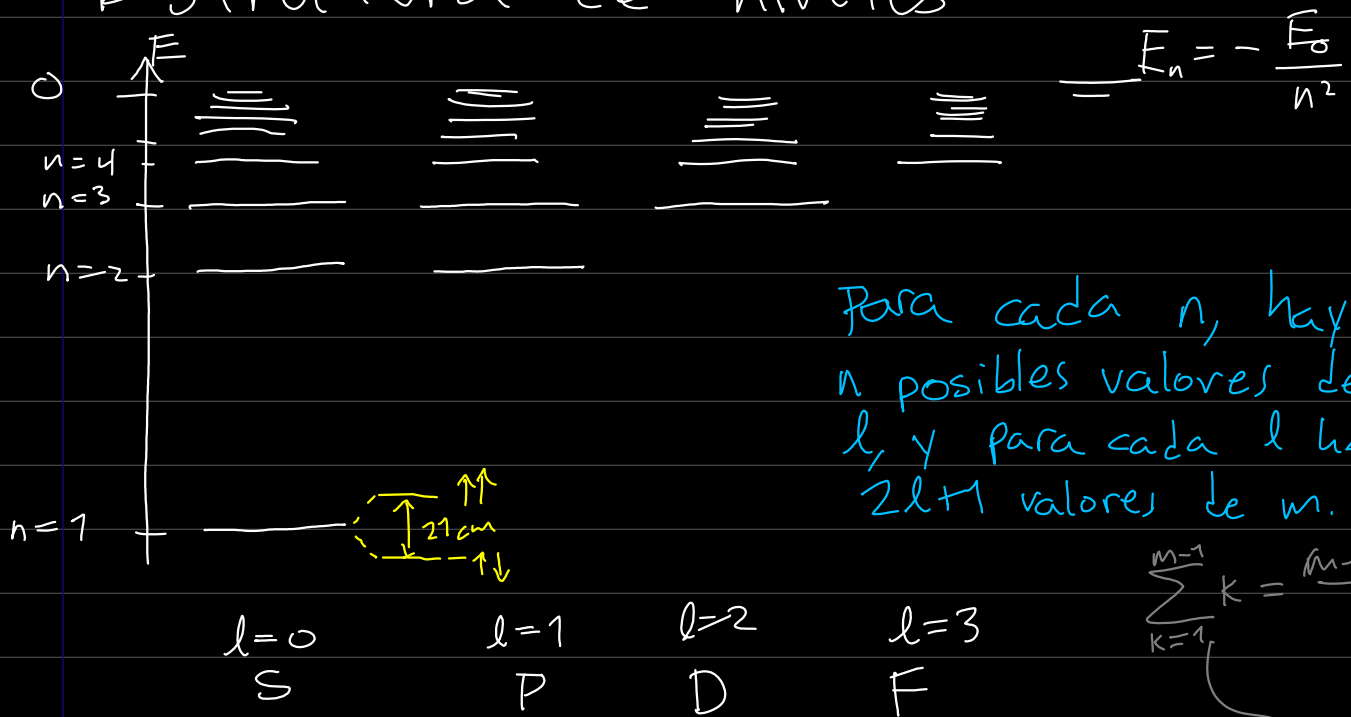 de niveles
E
0
E_n = - E_0 / n²
n=4
n=3
n=2
Para cada n, hay
n posibles valores de
l, y para cada l
2l+1 valores de m.
↑↑
21cm
↑↓
n=1
m-1
∑ k =
k=1
l=0 l=1 l=2 l=3
S P D F